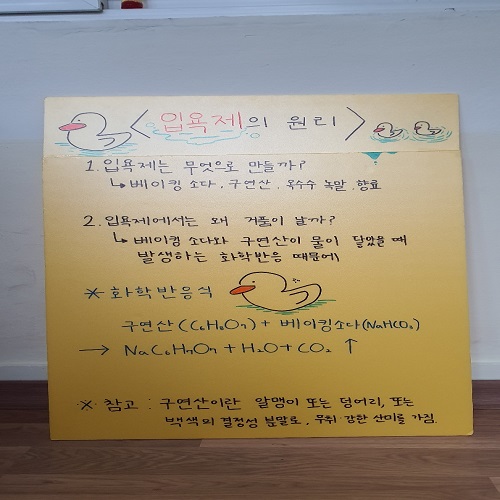 <입욕제의 원리>
1. 입욕제는 무엇으로 만들까?
↳ 베이킹 소다, 구연산, 옥수수 녹말, 향료
2. 입욕제에서는 왜 거품이 날까?
↳ 베이킹 소다와 구연산이 물이 닿았을 때
발생하는 화학반응 때문에
* 화학반응식
구연산(C6H8O7) + 베이킹소다(NaHCO3)
→ NaC6H7O7 + H2O + CO2 ↑
※ 참고 : 구연산이란 알맹이 또는 덩어리, 또는
백색의 결정성 분말로, 무취·강한 산미를 가짐.